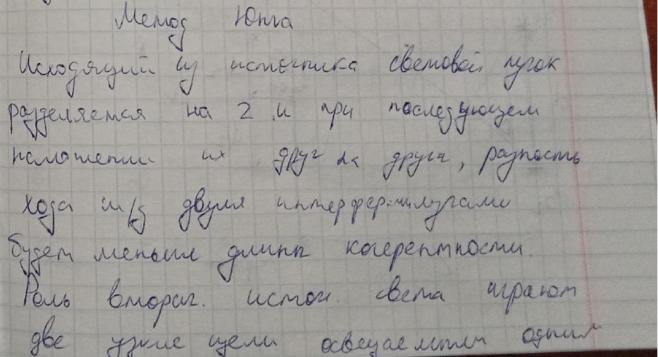 Метод Юнга
Исходящий из источника световой пучок
разделяется на 2 и при последующем
наложении их друг на друга, разность
хода м/д двумя интерфер-ми лучами
будет меньше длины когерентности.
Роль вторич. источ. света играют
две узкие щели освещаемые одним